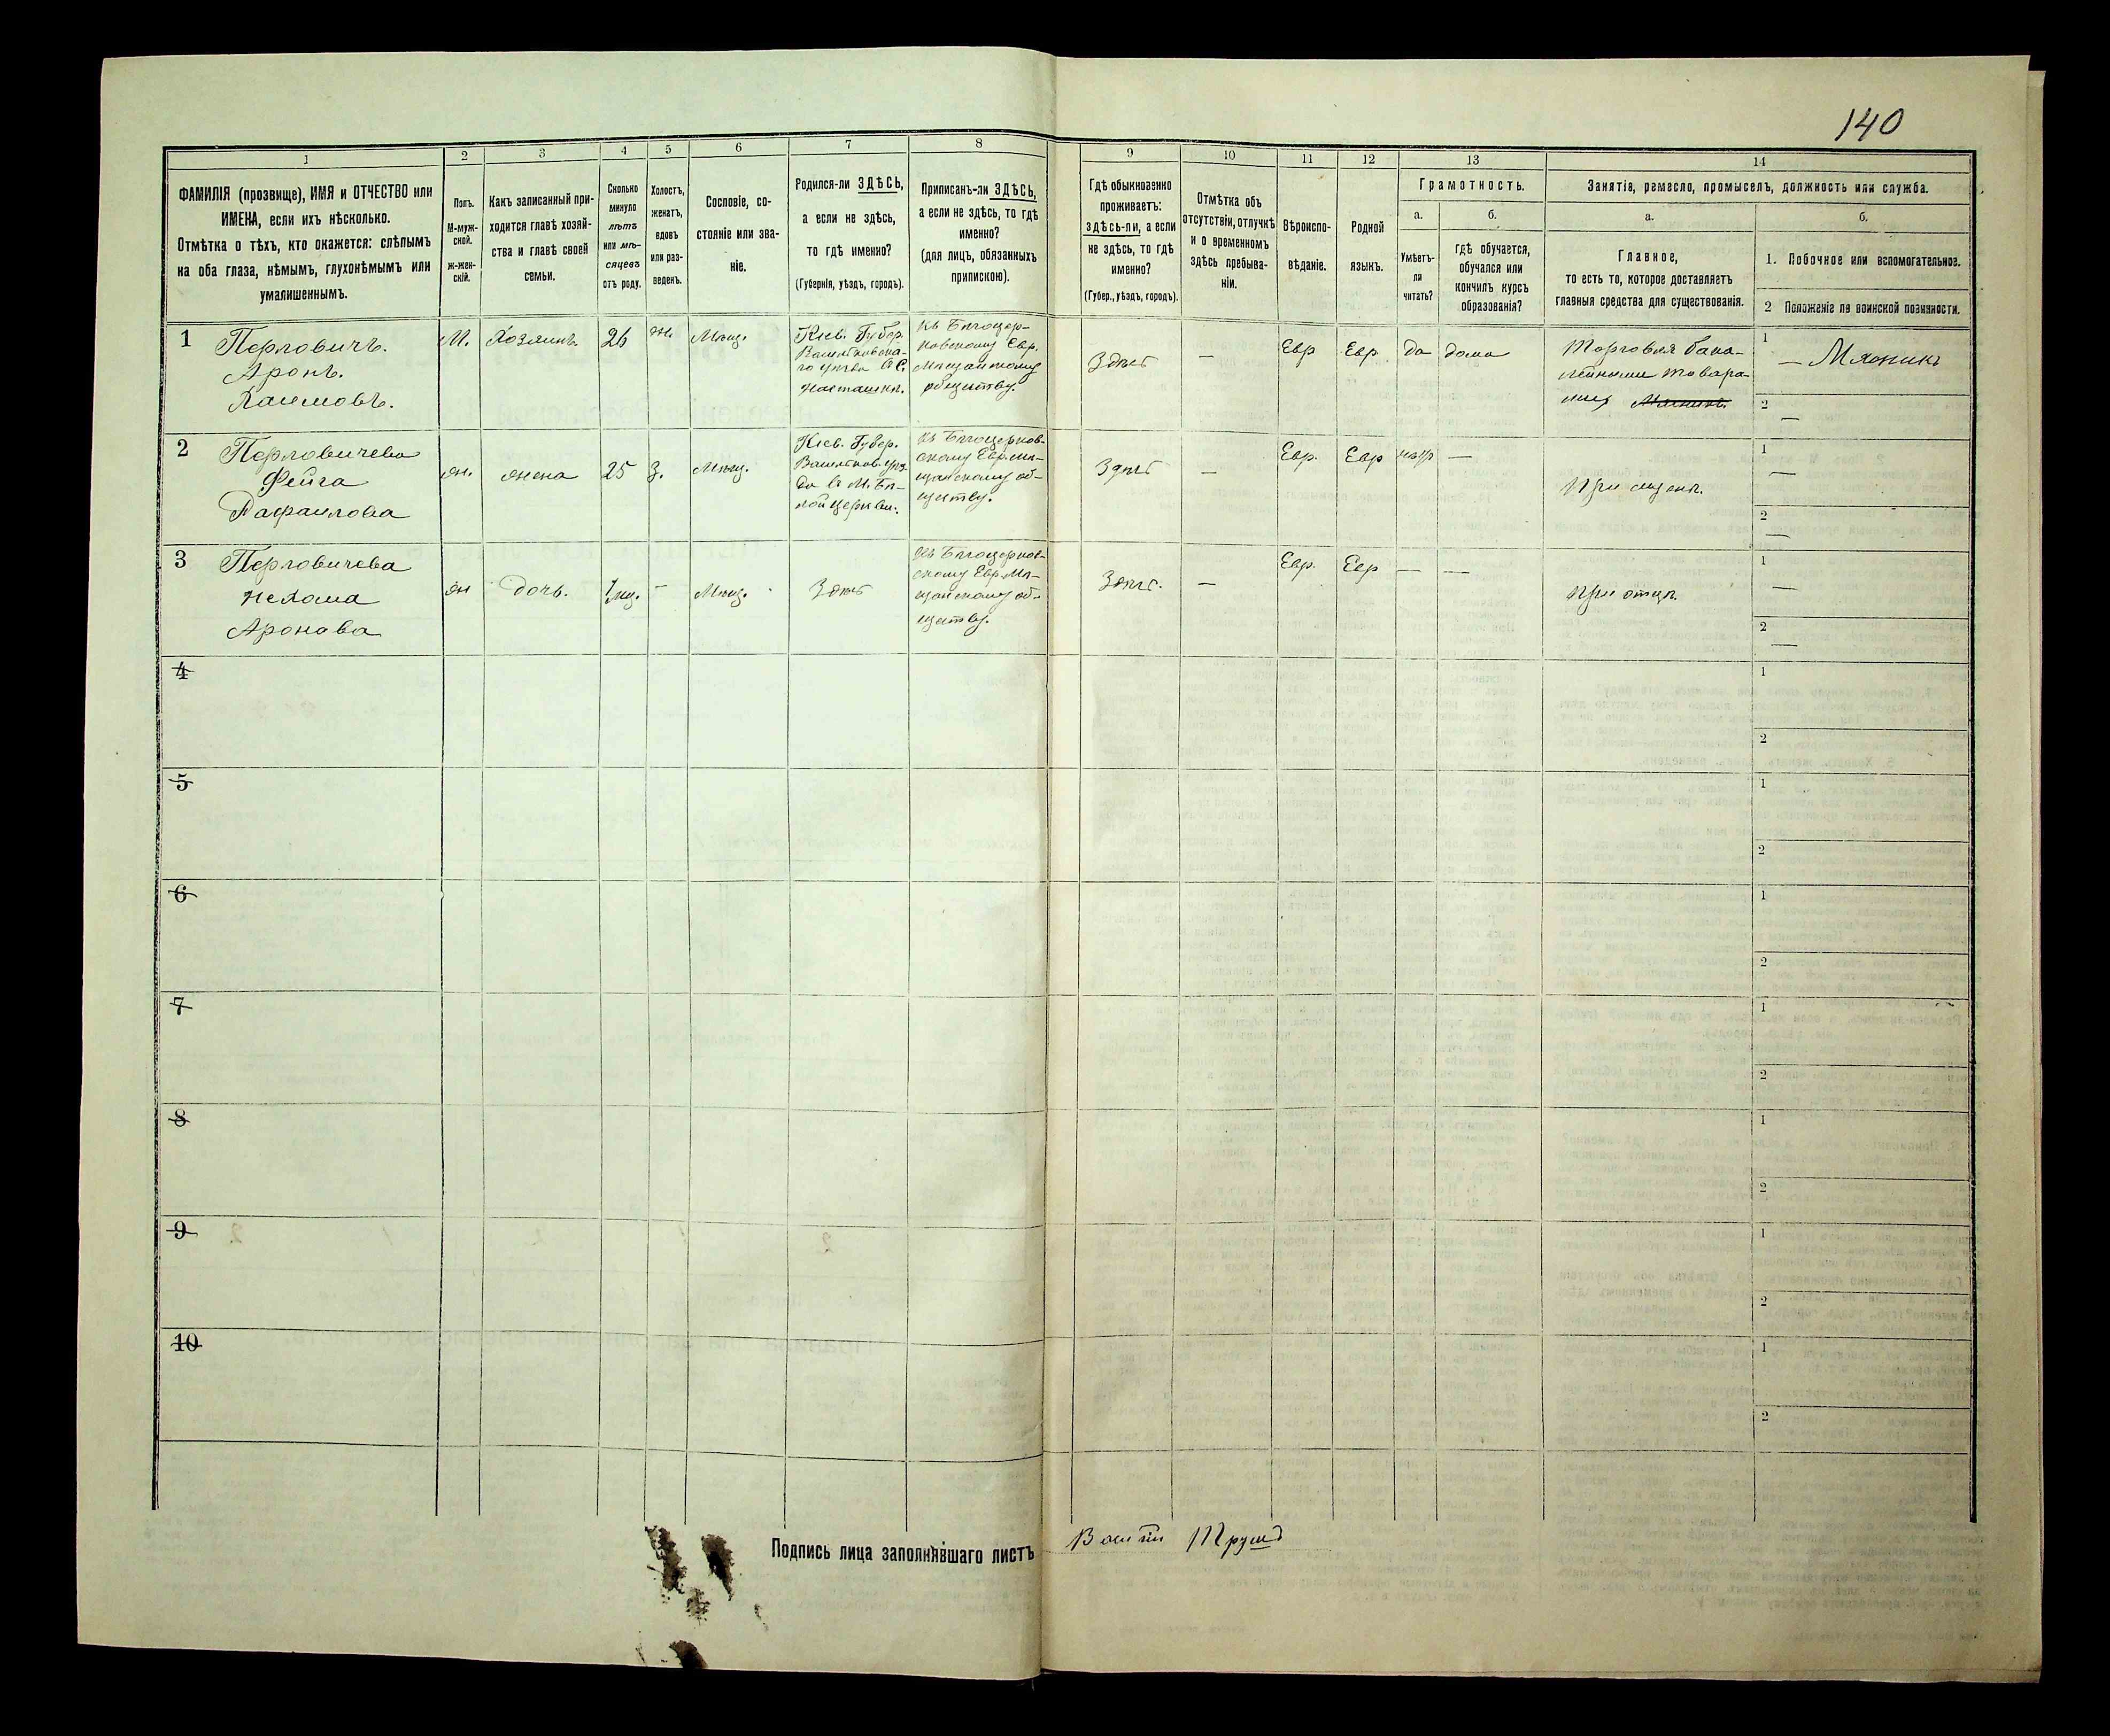 140
1 2 3 4 5 6 7 8 9 10 11 12 13 14
ФАМИЛІЯ (прозвище), ИМЯ и ОТЧЕСТВО или
ИМЕНА, если ихъ нѣсколько.
Отмѣтка о тѣхъ, кто окажется: слѣпымъ
на оба глаза, нѣмымъ, глухонѣмымъ или
умалишеннымъ.
Полъ.
М-муж-
ской.
ж-жен-
скій.
Какъ записанный при-
ходится главѣ хозяй-
ства и главѣ своей
семьи.
Сколько
минуло
лѣтъ
или мѣ-
сяцевъ
отъ роду.
Холостъ,
женатъ,
вдовъ
или раз-
веденъ.
Сословіе, со-
стояніе или зва-
ніе.
Родился-ли ЗДѢСЬ,
а если не здѣсь,
то гдѣ именно?
(Губернія, уѣздъ, городъ).
Приписанъ-ли ЗДѢСЬ,
а если не здѣсь, то гдѣ
именно?
(для лицъ, обязанныхъ
припискою).
Гдѣ обыкновенно
проживаетъ:
здѣсь-ли, а если
не здѣсь, то гдѣ
именно?
(Губер., уѣздъ, городъ).
Отмѣтка объ
отсутствіи, отлучкѣ
и о временномъ
здѣсь пребыва-
ніи.
Вѣроиспо-
вѣданіе.
Родной
языкъ.
Грамотность.
а.
Умѣетъ-
ли
читать?
б.
гдѣ обучается,
обучался или
кончилъ курсъ
образованія?
Занятіе, ремесло, промыселъ, должность или служба.
а.
Главное,
то есть то, которое доставляетъ
главныя средства для существованія.
б.
1. Побочное или вспомогательное.
2 Положеніе по воинской повинности.
1
Перловичъ.
Аронъ.
Хаимовъ.
М.
Хозяинъ
26
ж.
Мѣщ.
Кіев. Губер.
Васильковска-
го уѣзда въ С.
Насташкѣ.
Къ Бѣлоцер-
ковскому Евр.
Мѣщанскому
обществу.
Здѣсь
—
Евр
Евр
да
дома
Торговля бака-
лейными товара-
ми
1
— Мясникъ
2
—
2
Перловичева
Фейга
Рафаилова
ж.
жена
25
З.
Мѣщ.
Кіев. Губер.
Васильков. уѣз-
да въ М. Бѣ-
лой церкви.
Къ Бѣлоцерков-
скому Евр. Мѣ-
щанскому об-
ществу.
Здѣсь
—
Евр.
Евр
—
При мужѣ.
1
—
2
—
3
Перловичева
Нехама
Аронова
ж
дочь.
1 мц.
-
Мѣщ.
Здѣсь
Къ Бѣлоцерков-
скому Евр. Мѣ-
щанскому об-
ществу.
Здѣсь.
—
Евр.
Евр
—
—
При отцѣ.
1
—
2
—
4
1
2
5
1
2
6
1
2
7
1
2
8
1
2
9
1
2
10
1
2
Подпись лица заполнявшаго листъ